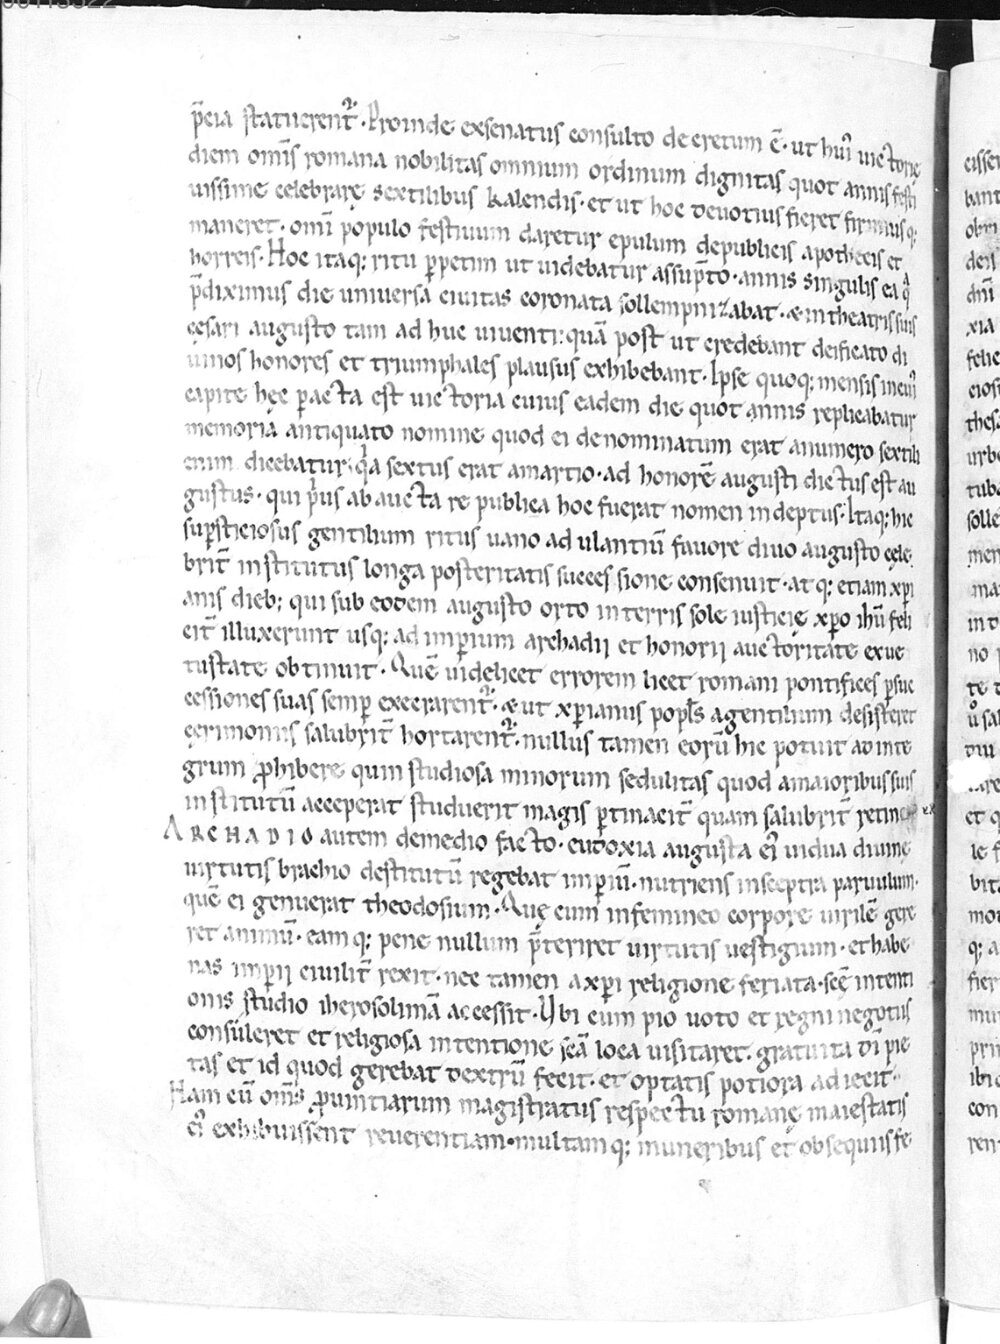 p̄cia statuerent᷑. Proinde exsenatus consulto decretum ē. ut hui᷒ uictorie
diem omīs romana nobilitas omnium ordinum dignitas quot annis festi
uissime celebrare sextilibus kalendis. et ut hoc deuotius fieret firmiusq;
maneret. omi᷒ populo festiuum daretur epulum depublicis apothecis et
horreis. Hoc itaq; ritu ꝑpetim ut uidebatur assūpto. annis singulis ea q̄
p̄diximus die uniuersa ciuitas coronata sollempnizabat. & intheatris suis
cesari augusto tam adhuc uiuenti: quā post ut credebant deificato di
uinos honores et triumphales plausus exhibebant. Ipse quoq; mensis incui᷒
capite hęc peracta est uictoria cuius eadem die quot annis replicabatur
memoria antiquato nomine quod ei denominatum erat anumero sextili
enim dicebatur. qa sextus erat amartio. ad honorē augusti dictus est au
gustus. qui p̄us ab aucta re publica hoc fuerat nomen indeptus. Itaq; hic
suꝑsticiosus gentilium ritus uano adulantiū fauore diuo augusto cele
brit̄ institutus longa posteritatis successione consenuit. atq; etiam xp̄i
anis dieb; qui sub eodem augusto orto interris sole iusticię xp̄o ihū feli
cit̄ illuxerunt usq; ad imꝑium archadii et honorii auctoritate exue
tustate obtinuit. Quē uidelicet errorem licet romani pontifices ꝑsuc
cessiones suas semꝑ execrarent᷑. & ut xp̄ianus popl̄s agentilium desisteret
cerimoniis salubrit̄ hortarent᷑. nullus tamen eorū hic potuit adinte
grum ꝓhibere quin studiosa minorum sedulitas quod amaioribus suis
institutū acceperat studuerit magis ꝑtinacit̄ quam salubrit̄ retinere.
ARCHADIO autem demedio facto. eudoxia augusta ei᷒ uidua diuine
uirtutis brachio destitutū regebat imꝑiū. nutriens insceptra paruulum.
quē ei genuerat theodosium. Quę cum infemineo corpore uirilē gere
ret animū. eamq; pene nullum p̄teriret uirtutis uestigium. et habe
nas imꝑii ciuilit̄ rexit. nec tamen axp̄i religione feriata. scē intenti
onis studio iherosolimā accessit. Ubi cum pio uoto et regni negotiis
consuleret et religiosa intentione scā loca uisitaret. gratuita di᷒ pie
tas et id quod gerebat dextrū fecit. et optatis potiora adiecit.
Nam cū omīs ꝓuintiarum magistratus respectu romanę maiestatis
ei᷒ exhibuissent reuerentiam. multamq; muneribus et obsequiis fe